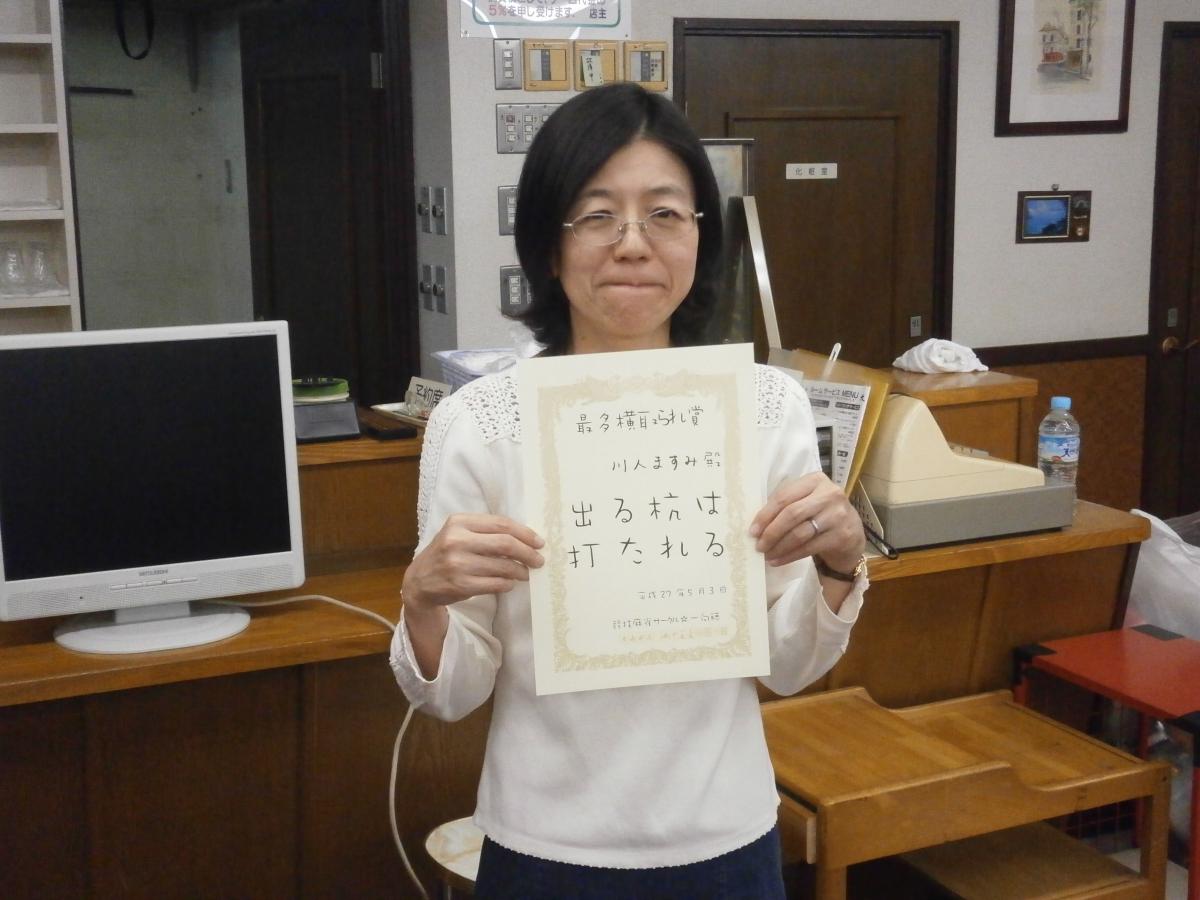 5%を申し受けます. 店主
化粧室
予約席
ルームサービス MENU
MITSUBISHI
最多横取られ賞
川人ますみ殿
出る杭は
打たれる
平成27年5月3日
競技麻雀サークル☆一向聴